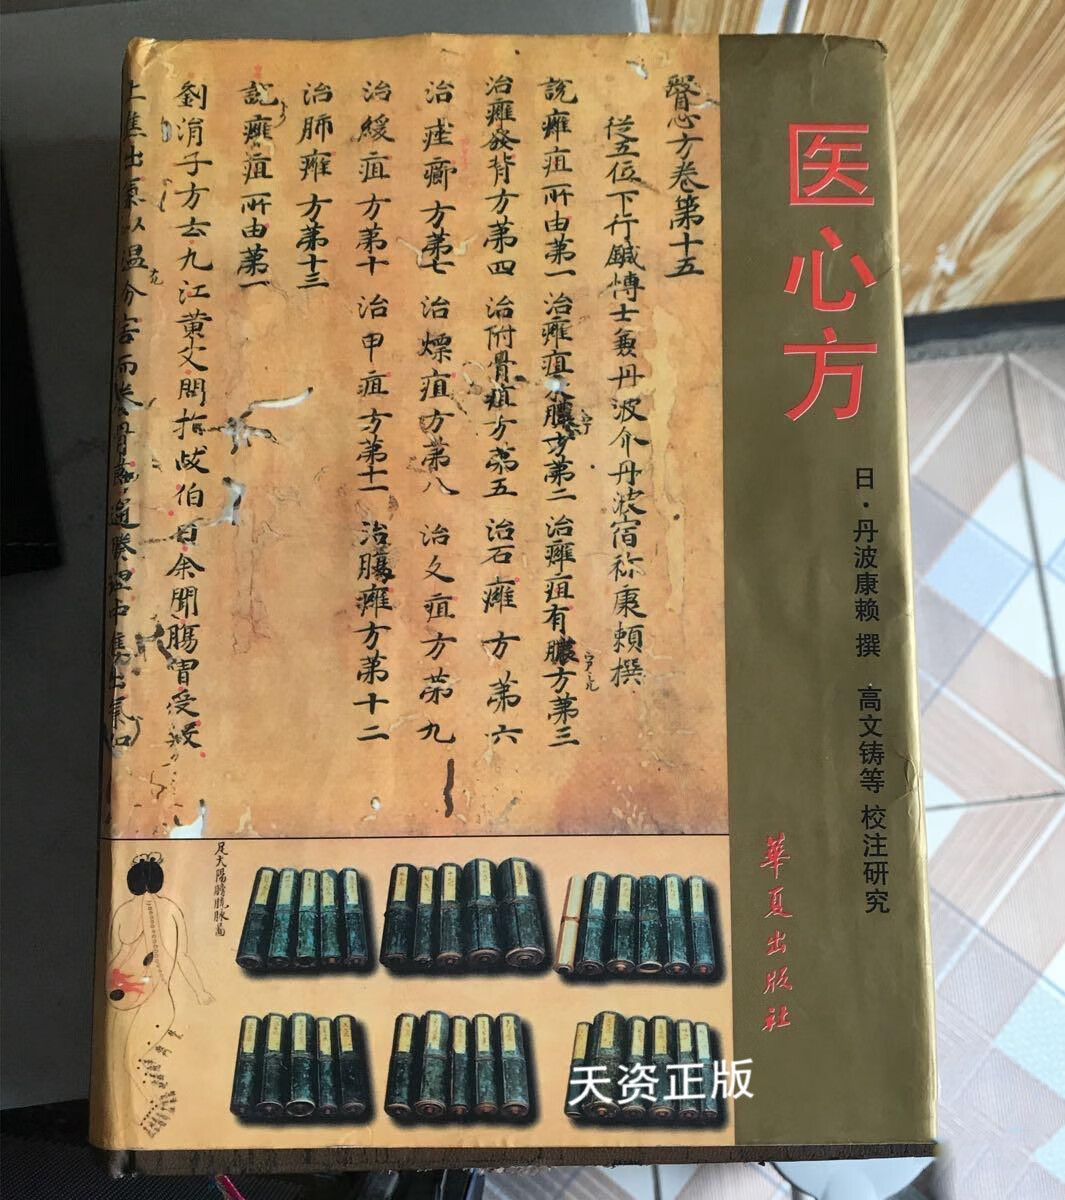 医心方
日·丹波康赖 撰 高文铸等 校注研究
華夏出版社
醫心方卷第十五
從五位下行鍼博士兼丹波介丹波宿祢康頼撰
説癰疽所由第一 治癰疽未膿方第二 治癰疽有膿方第三
治癰發背方第四 治附骨疽方第五 治石癰方第六
治痤癤方第七 治熛疽方第八 治久疽方第九
治緩疽方第十 治甲疽方第十一 治腸癰方第十二
治肺癰方第十三
説癰疽所由第一
劉涓子方云九江黄父問於岐伯曰余聞腸胃受
足太陽膀胱脉圖
天资正版